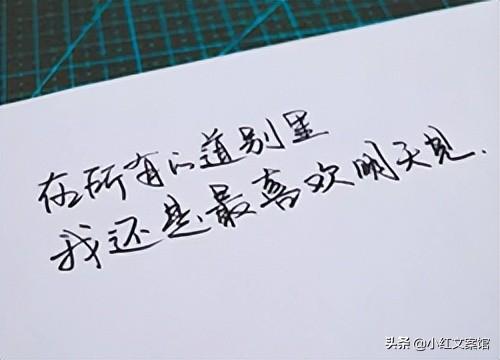 在所有的道别里
我还是最喜欢明天见.
头条 @小红文案馆